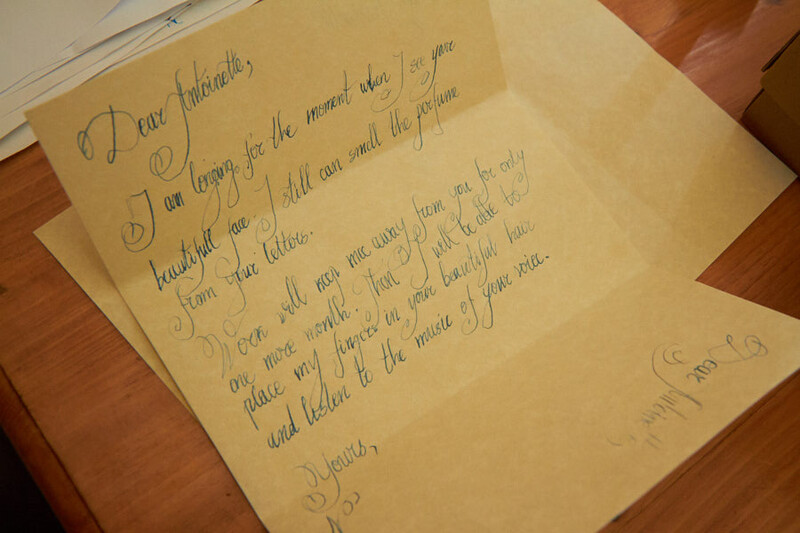 Dear Antoinette,
I am longing for the moment when I see your
beautifull face. I still can smell the perfume
from your letters.
Work will keep me away from you for only
one more month. Then I will be able to
place my fingers in your beautiful hair
and listen to the music of your voice.
Yours,
Dear